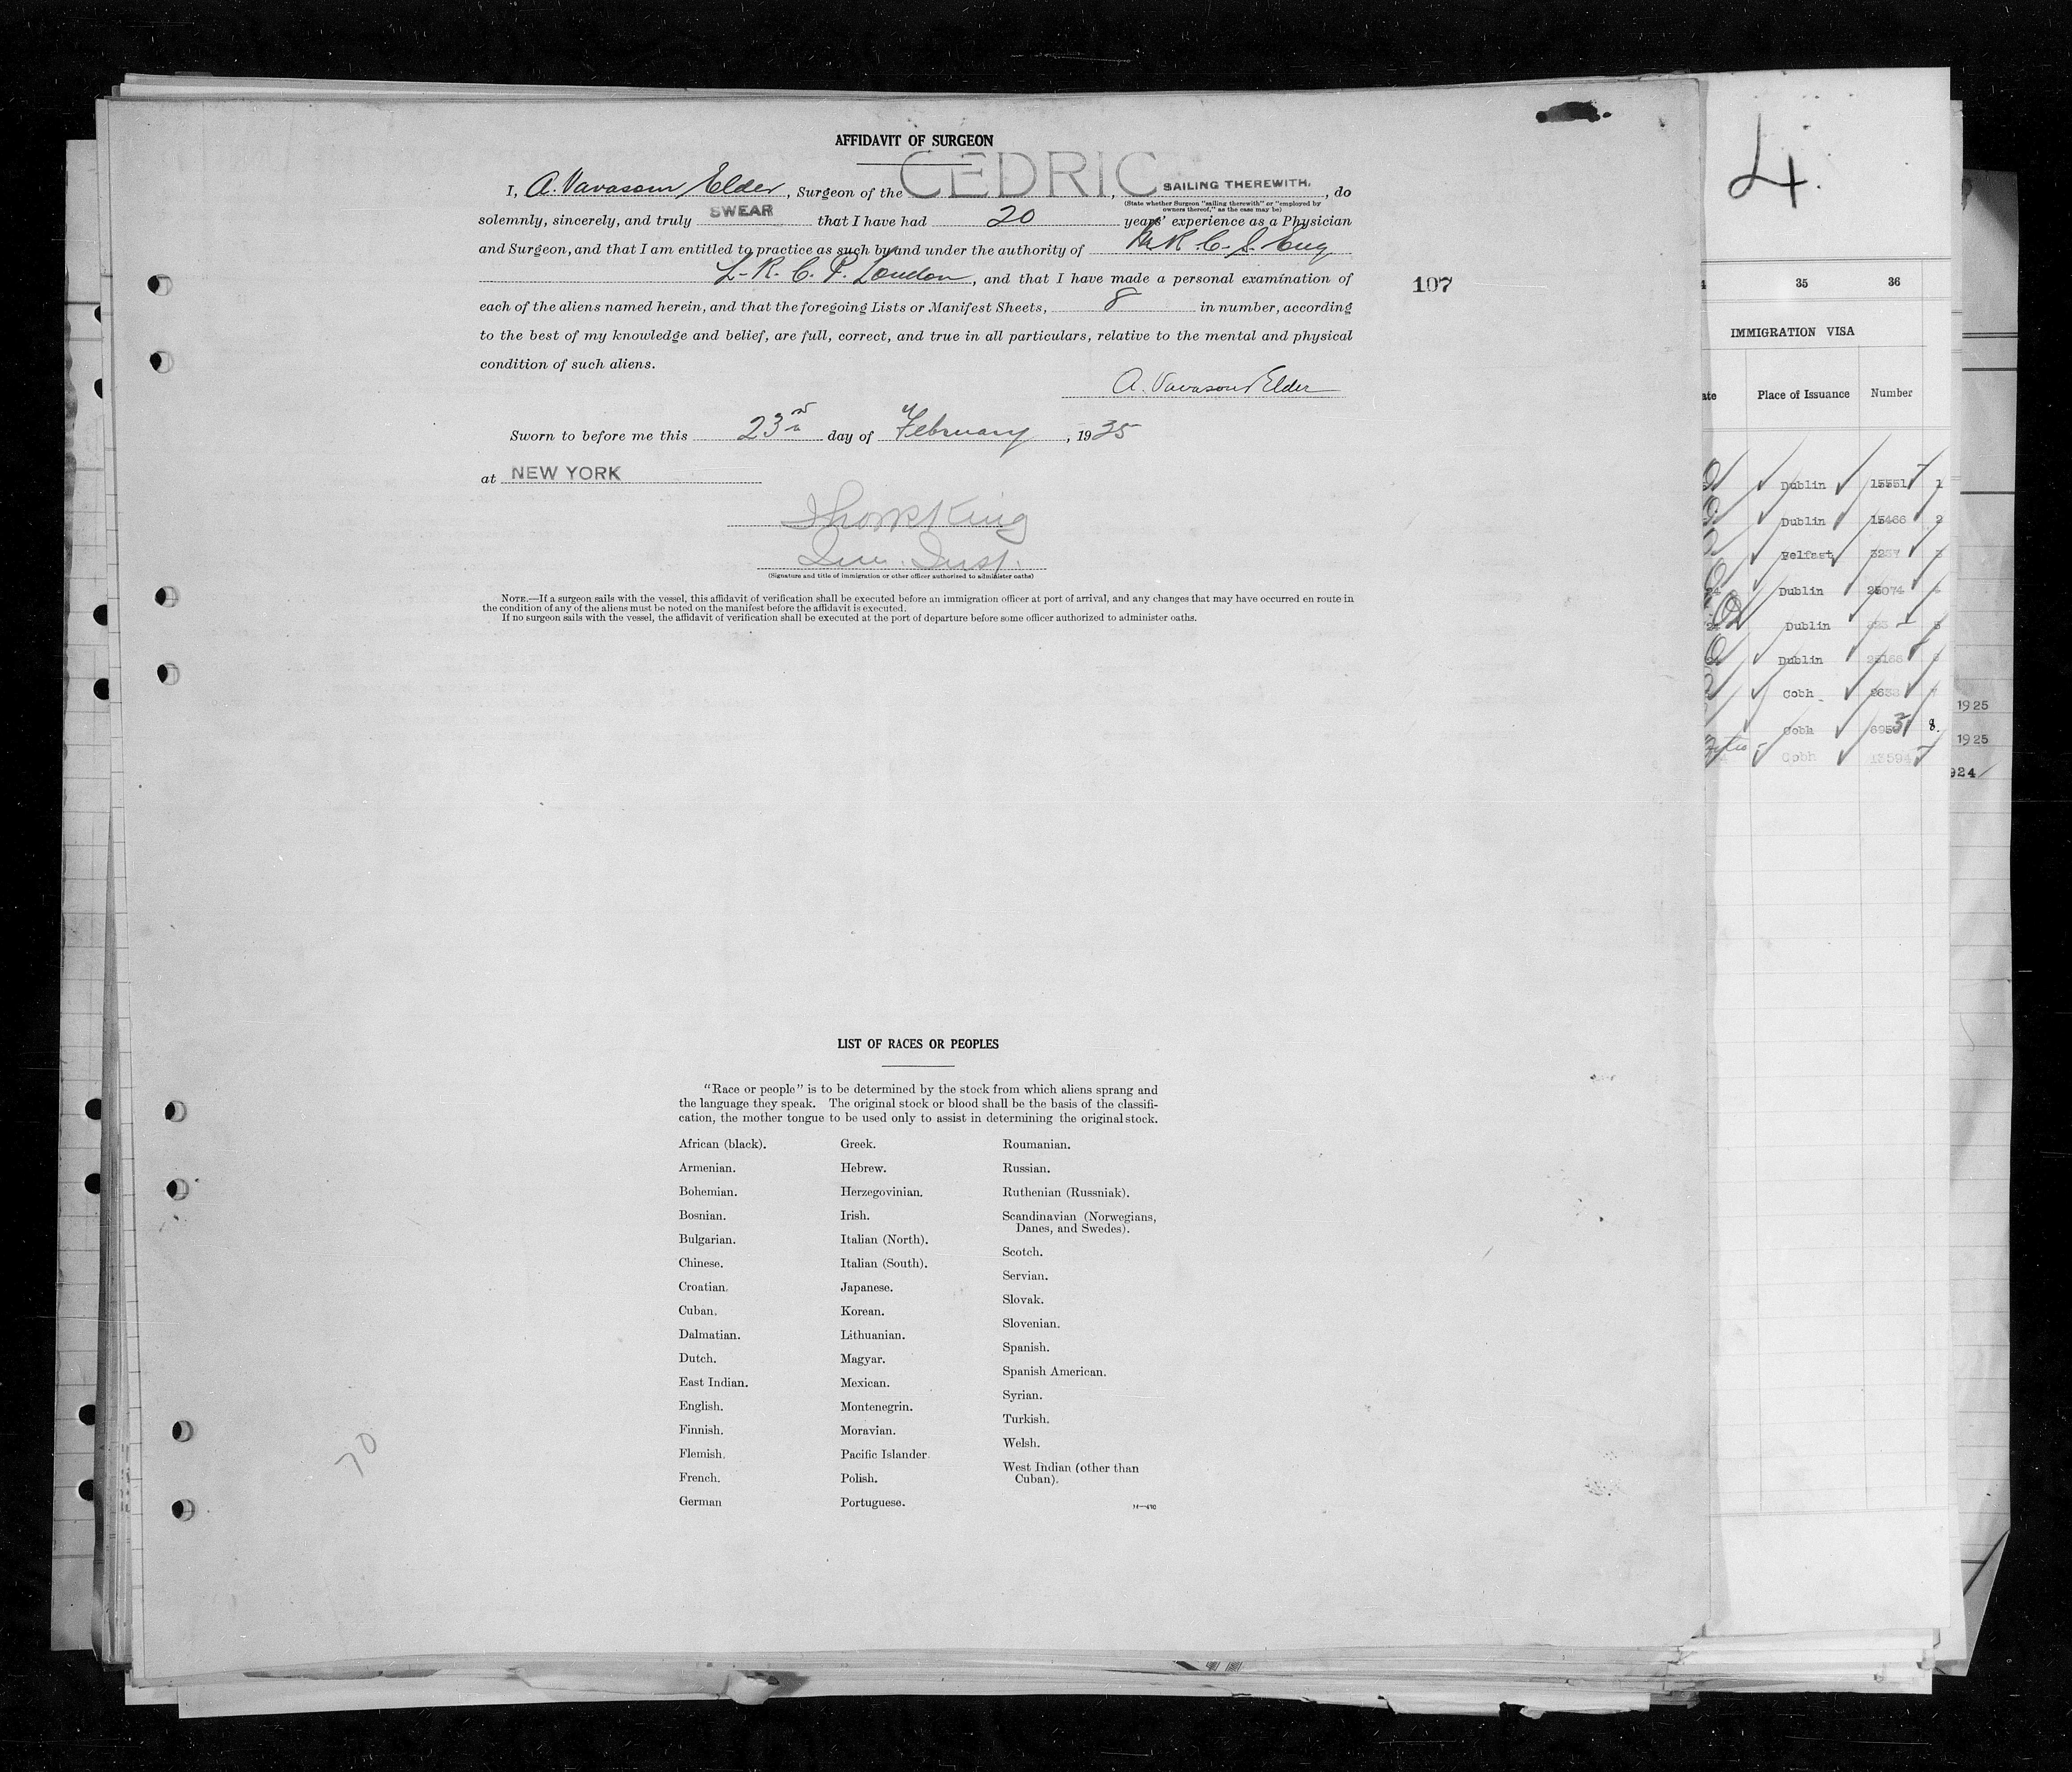 AFFIDAVIT OF SURGEON
I, A. Vavasour Elder, Surgeon of the CEDRIC, SAILING THEREWITH, do
(State whether Surgeon "sailing therewith" or "employed by
owners thereof," as the case may be)
solemnly, sincerely, and truly SWEAR that I have had 20 years' experience as a Physician
and Surgeon, and that I am entitled to practice as such by and under the authority of M.R.C.S. Eng
L.R.C.P. London, and that I have made a personal examination of
each of the aliens named herein, and that the foregoing Lists or Manifest Sheets, 8 in number, according
to the best of my knowledge and belief, are full, correct, and true in all particulars, relative to the mental and physical
condition of such aliens.
A. Vavasour Elder
Sworn to before me this 23rd day of February, 1935
at NEW YORK
Imm. Insp.
(Signature and title of immigration or other officer authorized to administer oaths)
NOTE.—If a surgeon sails with the vessel, this affidavit of verification shall be executed before an immigration officer at port of arrival, and any changes that may have occurred en route in
the condition of any of the aliens must be noted on the manifest before the affidavit is executed.
If no surgeon sails with the vessel, the affidavit of verification shall be executed at the port of departure before some officer authorized to administer oaths.
107
LIST OF RACES OR PEOPLES
"Race or people" is to be determined by the stock from which aliens sprang and
the language they speak. The original stock or blood shall be the basis of the classifi-
cation, the mother tongue to be used only to assist in determining the original stock.
African (black).
Armenian.
Bohemian.
Bosnian.
Bulgarian.
Chinese.
Croatian.
Cuban.
Dalmatian.
Dutch.
East Indian.
English.
Finnish.
Flemish.
French.
German
Greek.
Hebrew.
Herzegovinian.
Irish.
Italian (North).
Italian (South).
Japanese.
Korean.
Lithuanian.
Magyar.
Mexican.
Montenegrin.
Moravian.
Pacific Islander.
Polish.
Portuguese.
Roumanian.
Russian.
Ruthenian (Russniak).
Scandinavian (Norwegians,
Danes, and Swedes).
Scotch.
Servian.
Slovak.
Slovenian.
Spanish.
Spanish American.
Syrian.
Turkish.
Welsh.
West Indian (other than
Cuban).
70
4.
35 36
IMMIGRATION VISA
Place of Issuance Number
Dublin 15551 1
Dublin 15466 2
Belfast 3
Dublin 25074 4
Dublin 5
Dublin 25166 6
Cobh 7
Cobh 8.
Cobh 13594
1925
1925
924